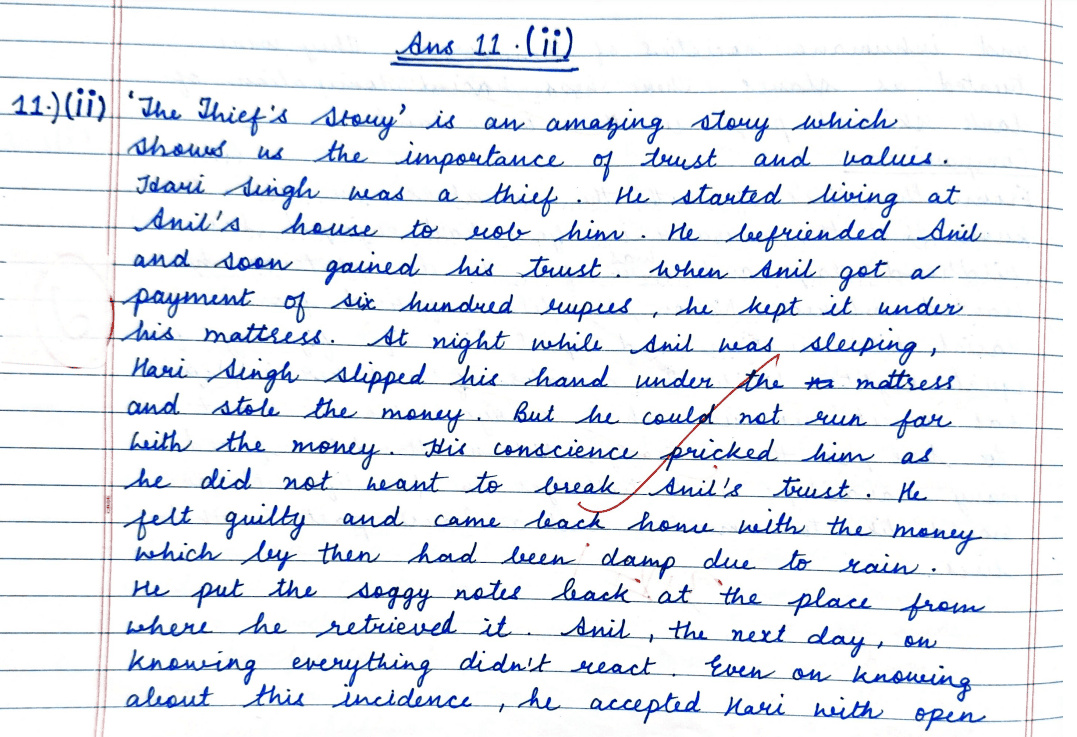 Ans 11.(ii)
11.)(ii) 'The Thief's Story' is an amazing story which
shows us the importance of trust and values.
Hari Singh was a thief. He started living at
Anil's house to rob him. He befriended Anil
and soon gained his trust. When Anil got a
payment of six hundred rupees, he kept it under
his mattress. At night while Anil was sleeping,
Hari Singh slipped his hand under the mattress
and stole the money. But he could not run far
with the money. His conscience pricked him as
he did not want to break Anil's trust. He
felt guilty and came back home with the money
which by then had been damp due to rain.
He put the soggy notes back at the place from
where he retrieved it. Anil, the next day, on
knowing everything didn't react. Even on knowing
about this incidence, he accepted Hari with open